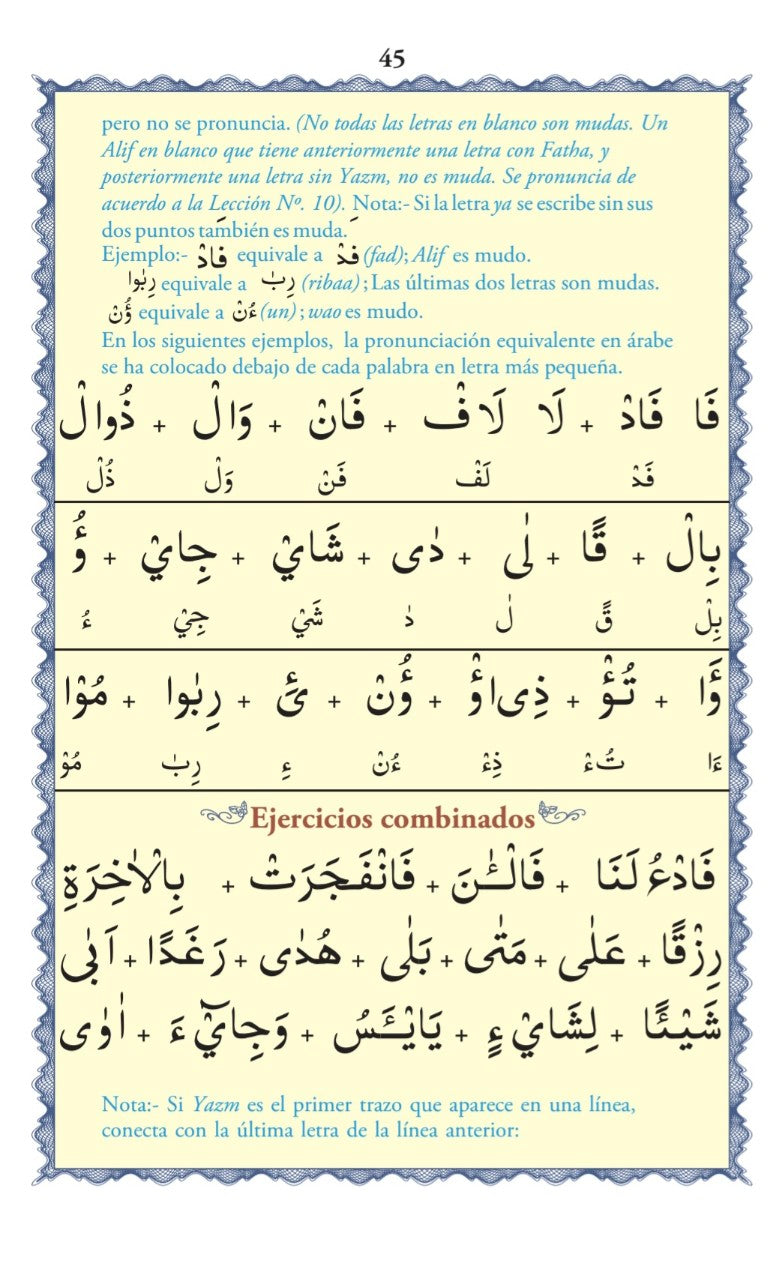 45
pero no se pronuncia. (No todas las letras en blanco son mudas. Un
Alif en blanco que tiene anteriormente una letra con Fatha, y
posteriormente una letra sin Yazm, no es muda. Se pronuncia de
acuerdo a la Lección Nº. 10). Nota:- Si la letra ya se escribe sin sus
dos puntos también es muda.
Ejemplo:- فَادْ equivale a فَدْ (fad); Alif es mudo.
رِبٰوا equivale a رِبٰ (ribaa) ; Las últimas dos letras son mudas.
ؤُنْ equivale a ءُنْ (un) ; wao es mudo.
En los siguientes ejemplos, la pronunciación equivalente en árabe
se ha colocado debajo de cada palabra en letra más pequeña.
فَا فَادْ + لَا لَافْ + فَانْ + وَالْ + ذُوالْ
فَدْ لَفْ فَنْ وَلْ ذُلْ
بِالْ + قًا + لٰى + دٰى + شَايْ + جِايْ + ؤُ
بِلْ قً لٰ دٰ شَيْ جِيْ ءُ
ؤَا + تُؤْ + ذِىاؤْ + ؤُنْ + ئِ + رِبٰوا + مُوْا
ءَا تُءْ ذِءْ ءُنْ ءِ رِبٰ مُوْ
Ejercicios combinados
فَادْعُ لَنَا + فَالْـٰٔنَ + فَانْفَجَرَتْ + بِالْاٰخِرَةِ
رِزْقًا + عَلٰى + مَتٰى + بَلٰى + هُدٰى + رَغَدًا + اَبٰى
شَيْـًٔا + لِشَايْءٍ + يَايْـَٔسُ + وَجِايْٓءَ + اُوٰى
Nota:- Si Yazm es el primer trazo que aparece en una línea,
conecta con la última letra de la línea anterior: